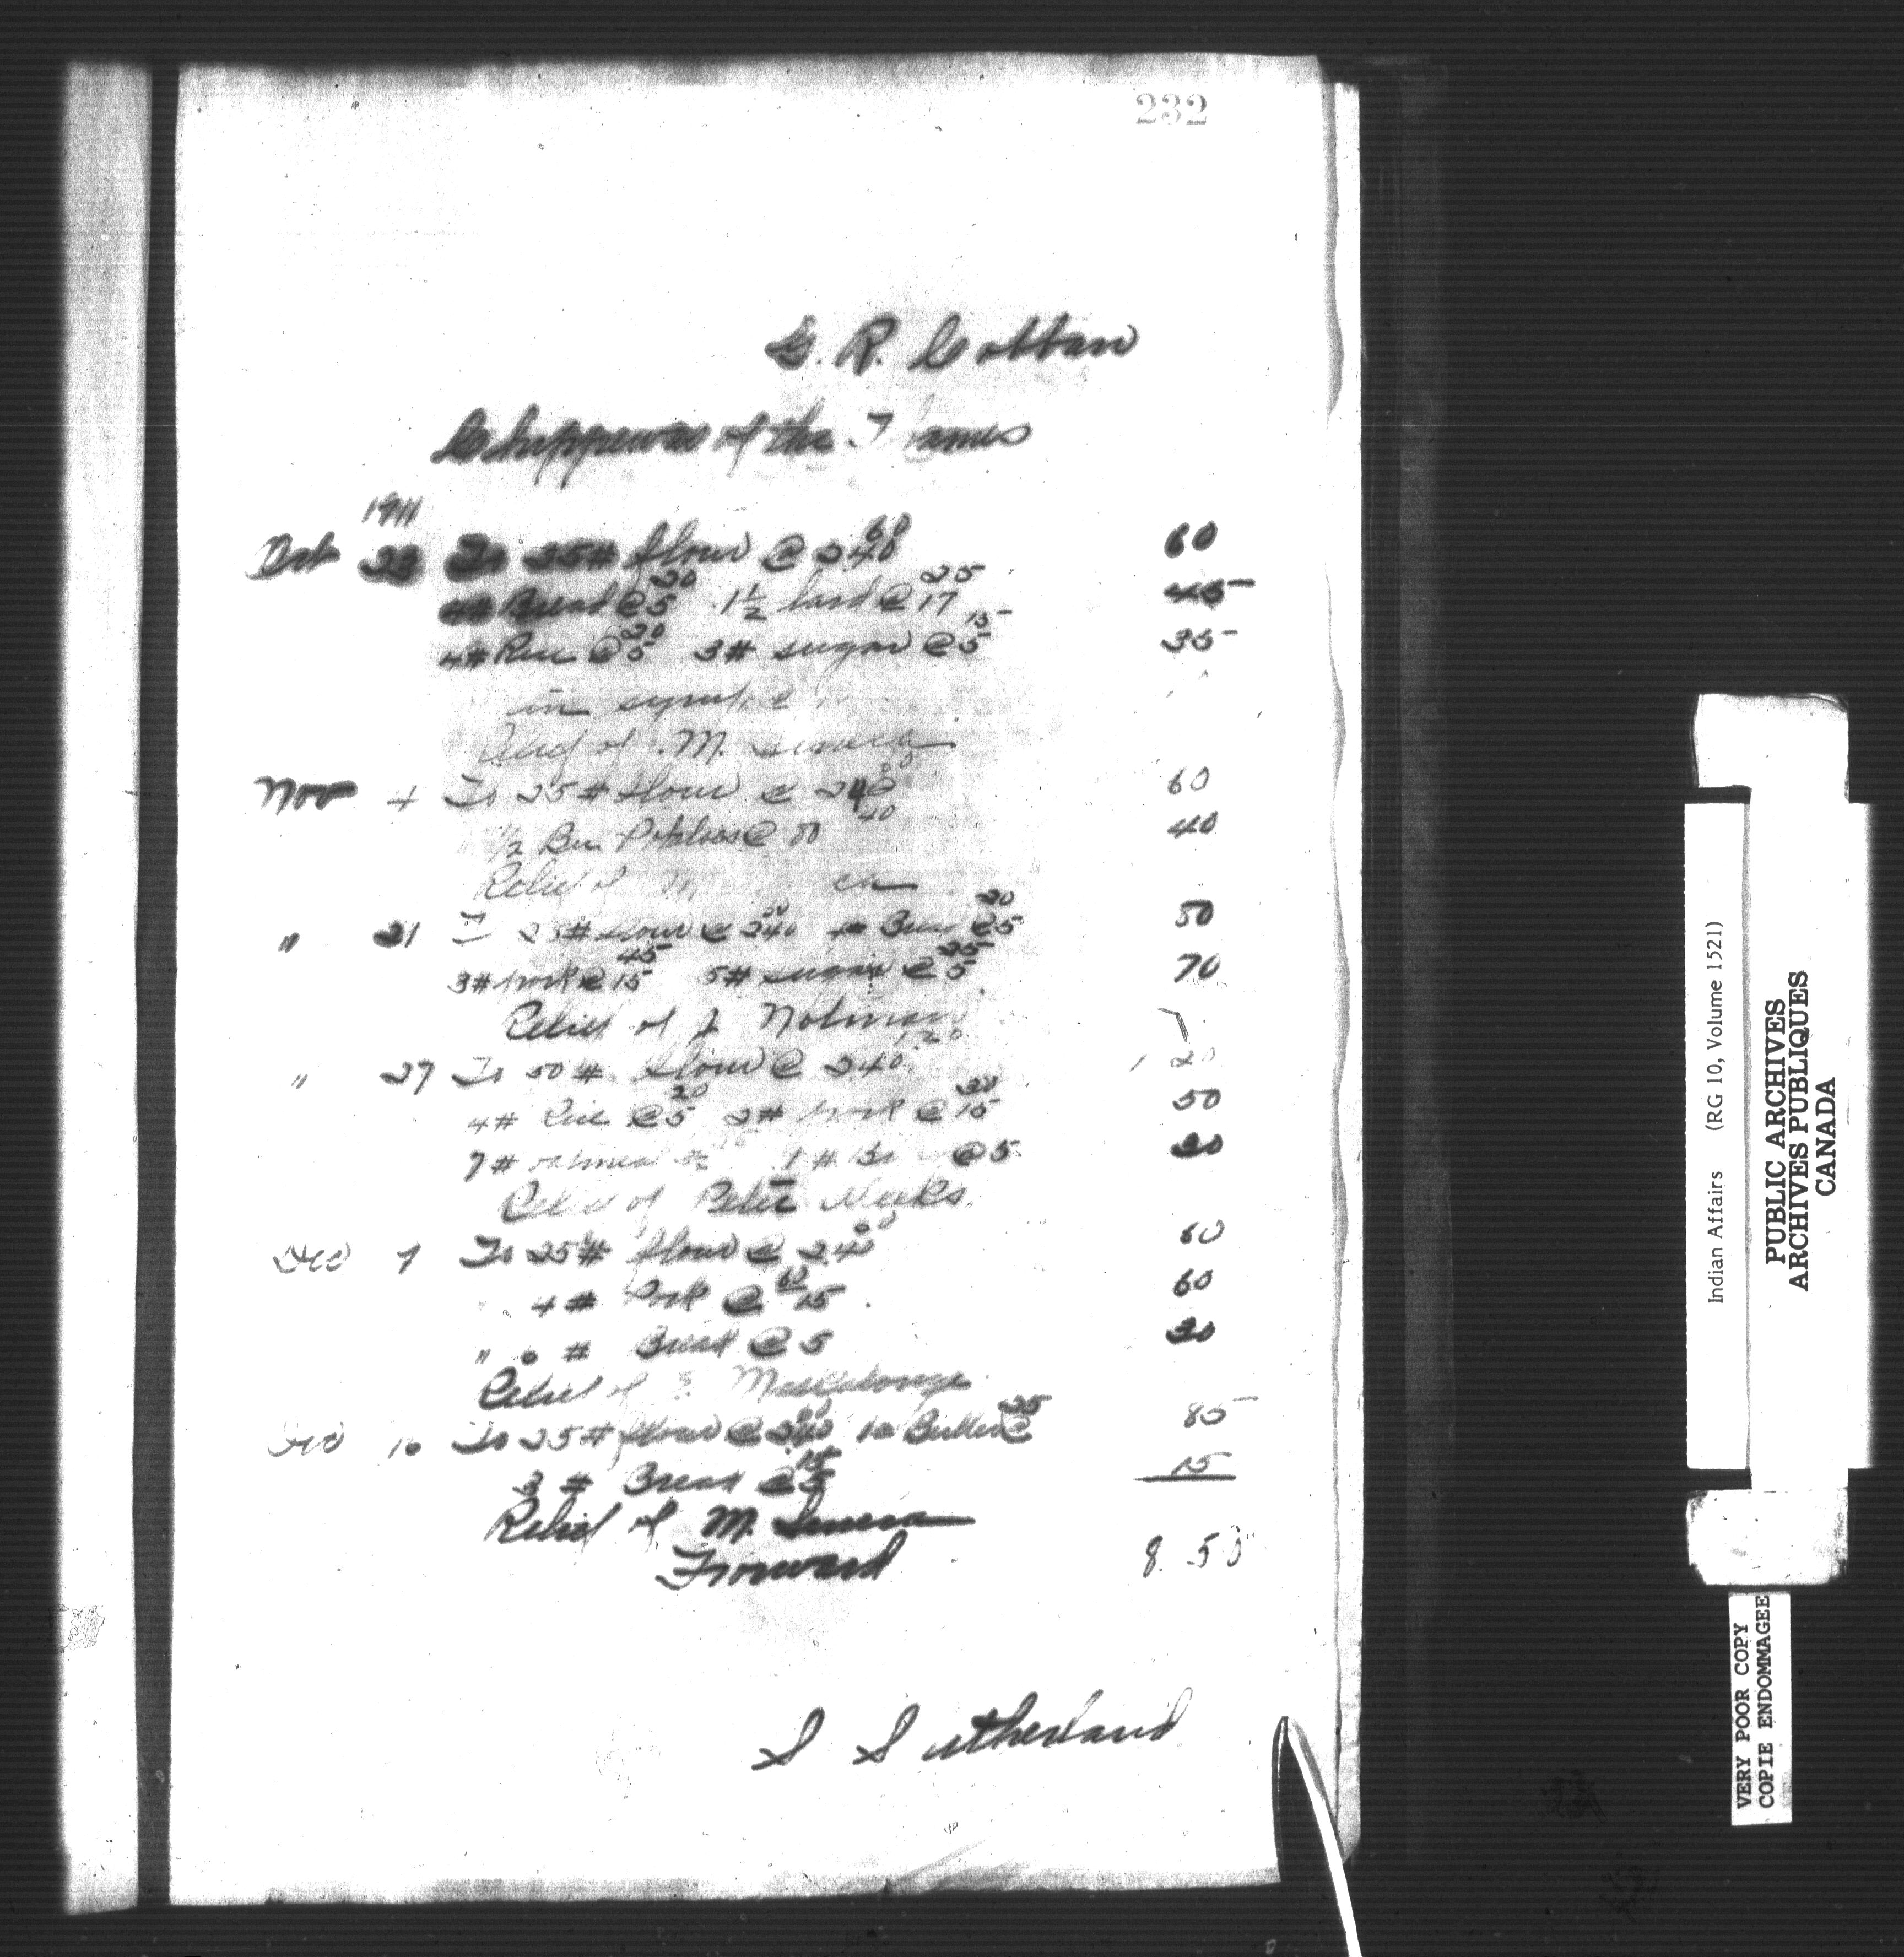 232
G. R. Cobban
Chippewas of the Thames
1911
Oct 23 To 25# flour @ 2.40 60 60
4# Bread @ 5 20 1 1/2 lard @ 17 25 45
4# Rice @ 5 20 3# sugar @ 5 15 35
Relief of M. Seneca
Nov 4 To 25# flour @ 240 60 60
1/2 Bu Potatoes @ 80 40 40
Relief of M
" 21 25# flour @ 240 @ 5 20 50
3# Pork @ 15 45 5# sugar @ 5 25 70
Relief of J
" 27 To 50# flour @ 240 120 1 20
4# Rice @ 5 20 2# Pork @ 15 30 50
7# oatmeal 1# @ 5 30
Relief of Peter
Dec 7 To 25# flour @ 240 60 60
4# Pork @ 15 60 60
" 6 # Bread @ 5 30
Relief of
Dec 16 To 25# flour @ 240 60 1# Butter @ 25 85
3 # Bread @ 5 15 15
Relief of M. Seneca
Forward 8.55
S Sutherland
Indian Affairs (RG 10, Volume 1521)
PUBLIC ARCHIVES
ARCHIVES PUBLIQUES
CANADA
VERY POOR COPY
COPIE ENDOMMAGEE